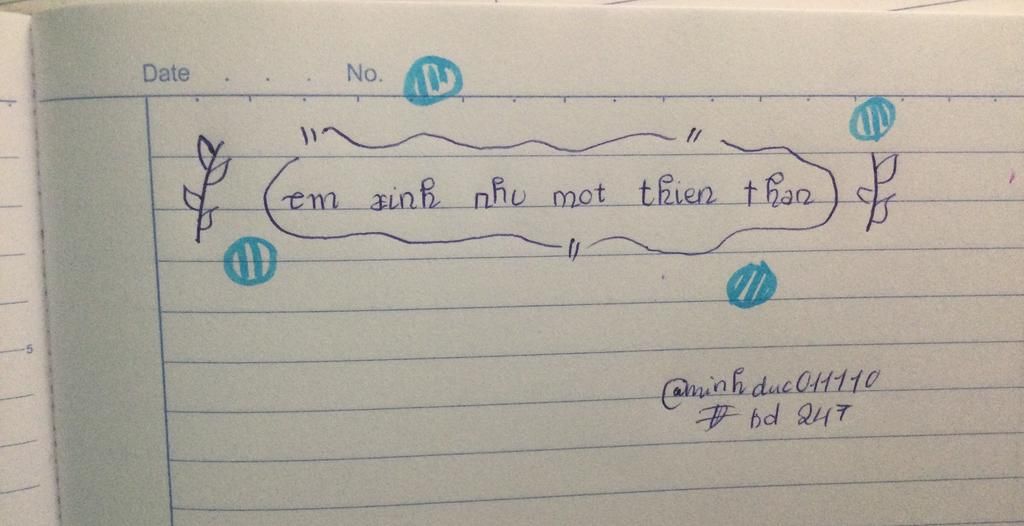 Date . . . No.
em xinh nhu mot thien than
5
@minhduc011110
# bd 247